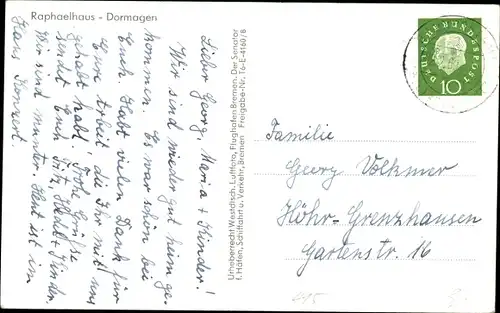 Raphaelhaus - Dormagen
Lieber Georg, Maria + Kinder!
Wir sind wieder gut heim ge-
kommen. Es war schön bei
Euch. Habt vielen Dank für
Eure Arbeit die Ihr mit uns
gehabt habt. Frohe Grüße
sendet Euch Fritz, Hedl + Kinder
Wir sind munter. Heut ist im
Haus Konzert.
Urheberrecht Westdtsch. Luftfoto, Flughafen Bremen, Der Senator
f. Häfen, Schiffahrt u. Verkehr, Bremen Freigabe-Nr. T6-E-4160/8
DEUTSCHE BUNDESPOST
10
Familie
Georg Volkmer
Höhr-Grenzhausen
Gartenstr. 16